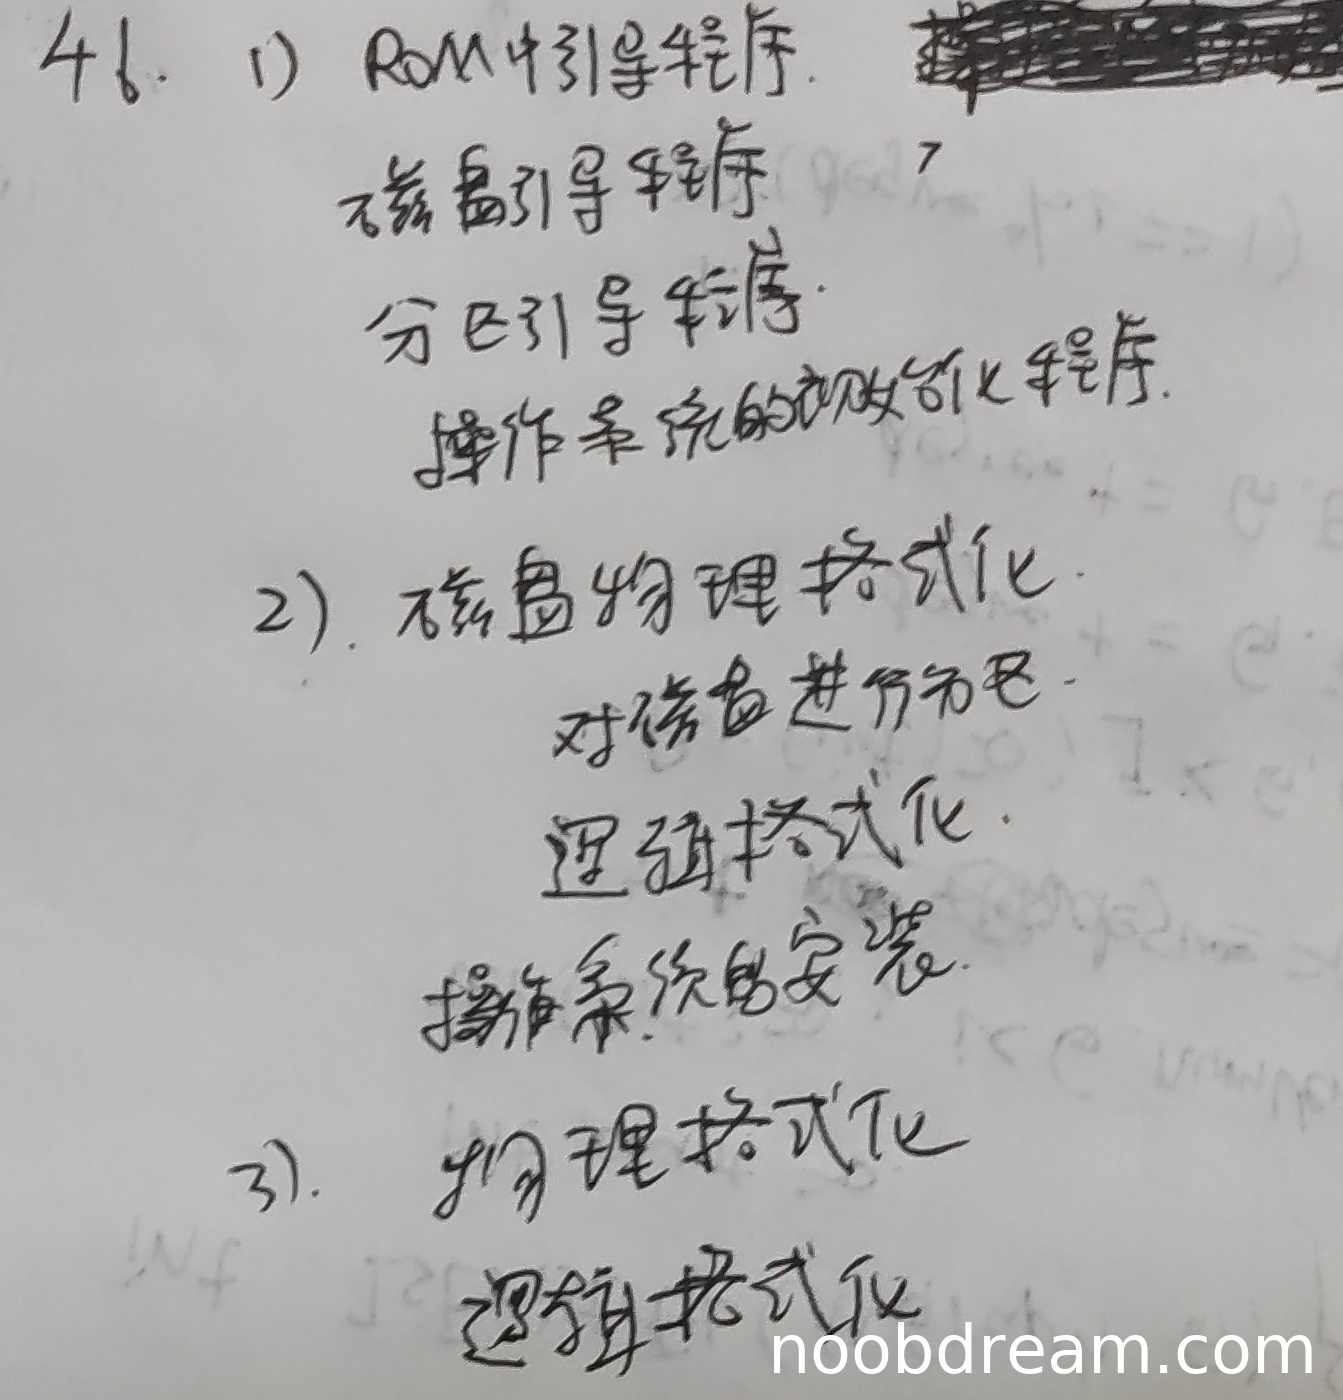 46. 1) ROM中引导程序.
磁盘引导程序
分区引导程序.
操作系统的初始化程序.
2). 磁盘物理格式化.
对磁盘进行分区.
逻辑格式化.
操作系统的安装.
3). 物理格式化
逻辑格式化
noobdream.com